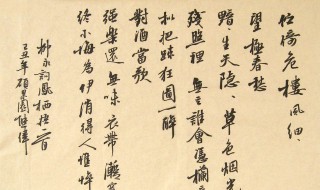 佇倚危樓風細、
望極春愁
黯、生天際 草色烟光
殘照裡 無言誰會憑欄
擬把疎狂圖一醉
對酒當歌
強樂還無味 衣帶漸寬
終不悔 為伊消得人憔悴
柳永詞鳳栖梧一首
己丑年